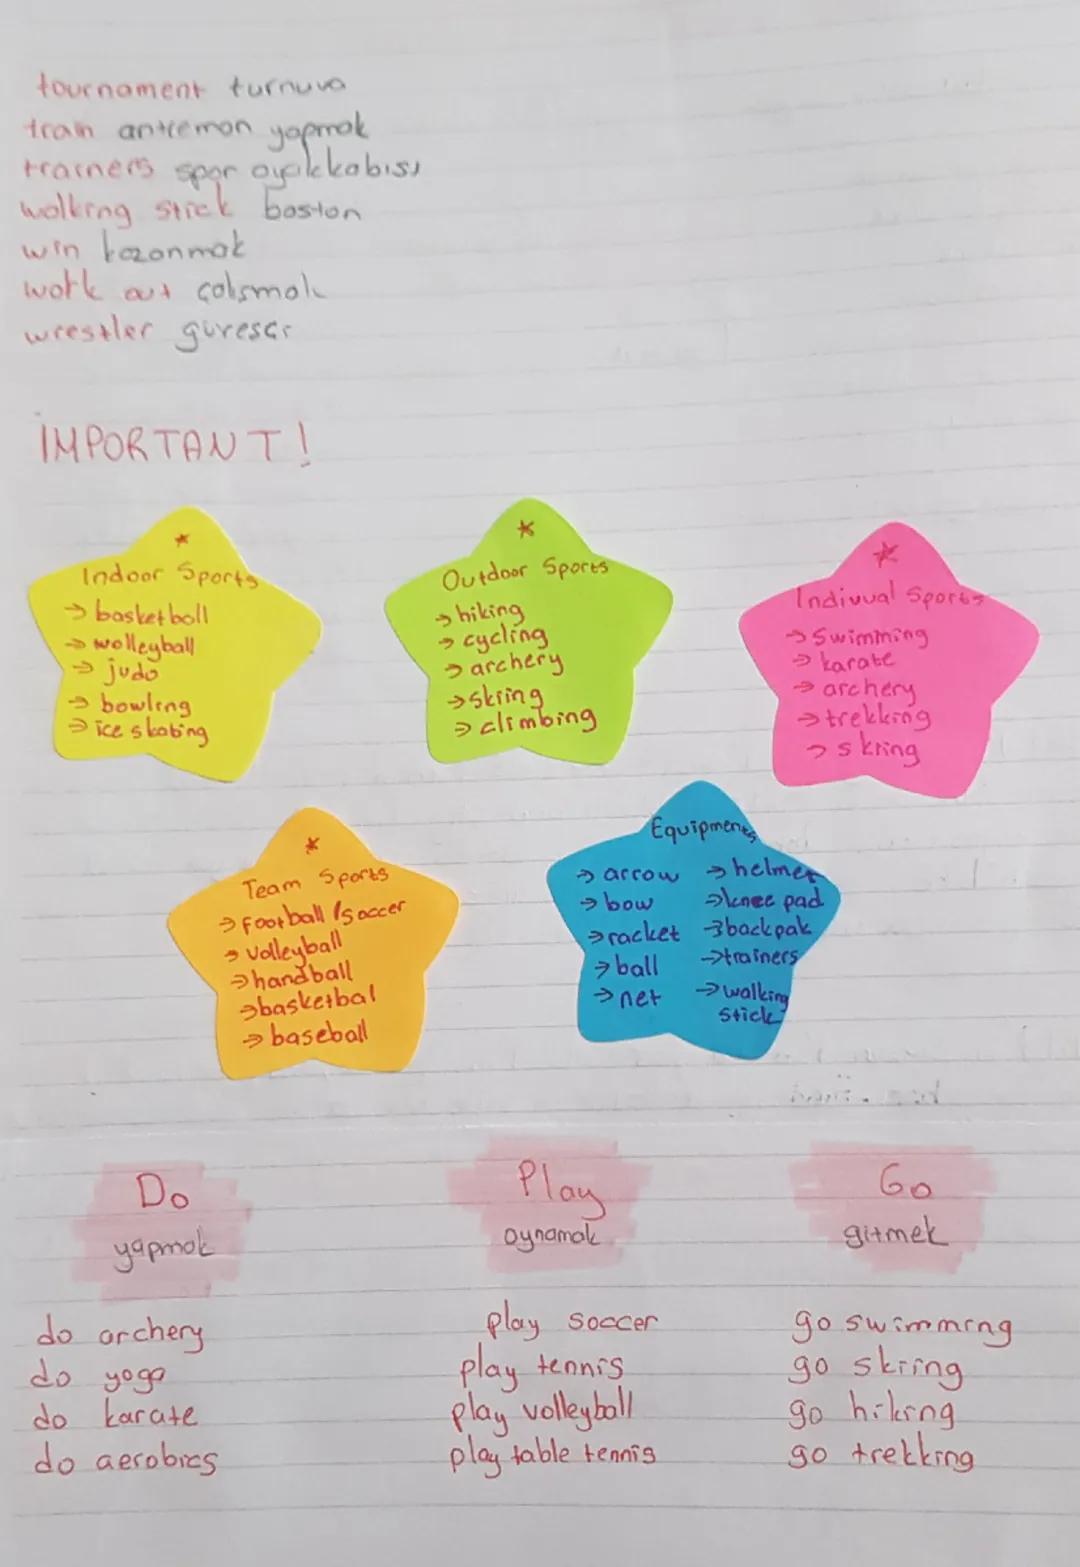 tournament turnuva
train antremon yapmak
trainers spor ayakkabısı
walking stick baston
win kazanmak
work out çalışmak
wrestler güreşçi
İMPORTANT!
Indoor Sports
→ basketball
→ wolleyball
→ judo
→ bowling
→ ice skating
Outdoor Sports
→ hiking
→ cycling
→ archery
→ skiing
→ climbing
Indivual Sports
→ Swimming
→ karate
→ archery
→ trekking
→ skiing
Team Sports
→ Football /soccer
→ Volleyball
→ handball
→ basketbal
→ baseball
Equipments
→ arrow → helmet
→ bow → knee pad
→ racket → backpak
→ ball → trainers
→ net → walking
stick
Do Play Go
yapmak oynamak gitmek
do archery play soccer go swimming
do yoga play tennis go skiing
do karate play volleyball go hiking
do aerobics play table tennis go trekking